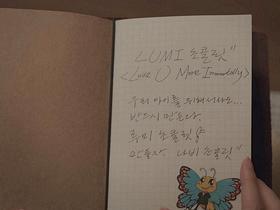 LUMI 초콜릿"
<Love U More Immortally>
우리 아이를 위해서라도...
반드시 만든다.
루미 초콜릿
만들자 나비 초콜릿"